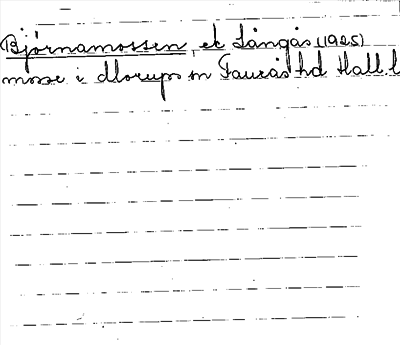 Björnamossen, ek Långås (1925)
mosse i Morups sn Faurås hd Hall. l